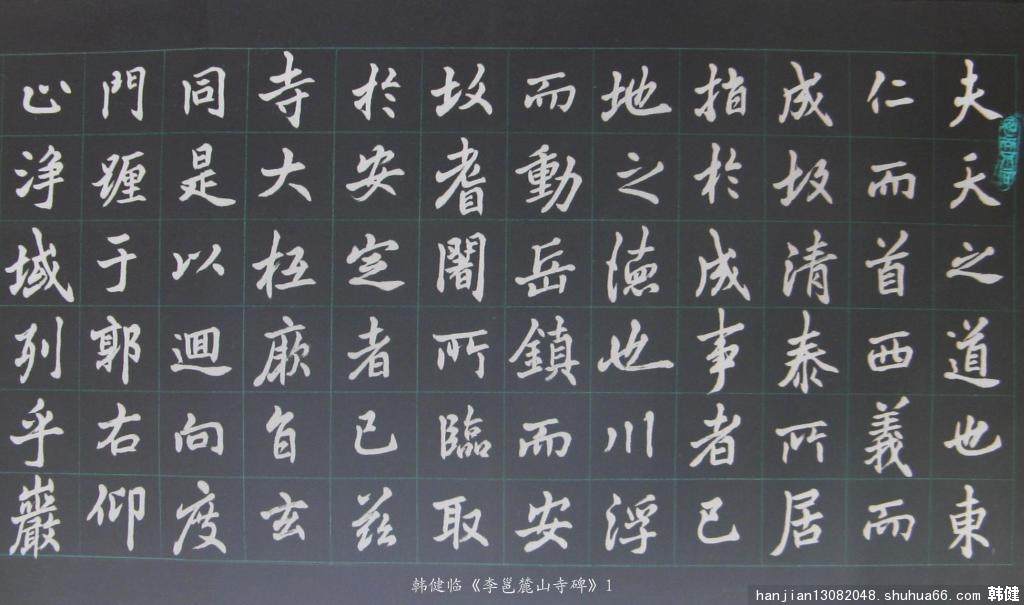 夫天之道也東
仁而首西義而
成故清泰所居
指於成事者已
地之德也川浮
而動岳鎮而安
故耆闍所臨取
於安定者已茲
寺大抵厥旨玄
同是以迴向度
門躔于郭右仰
止淨域列乎巖
韩健临《李邕麓山寺碑》1
hanjian13082048.shuhua66.com 韩健